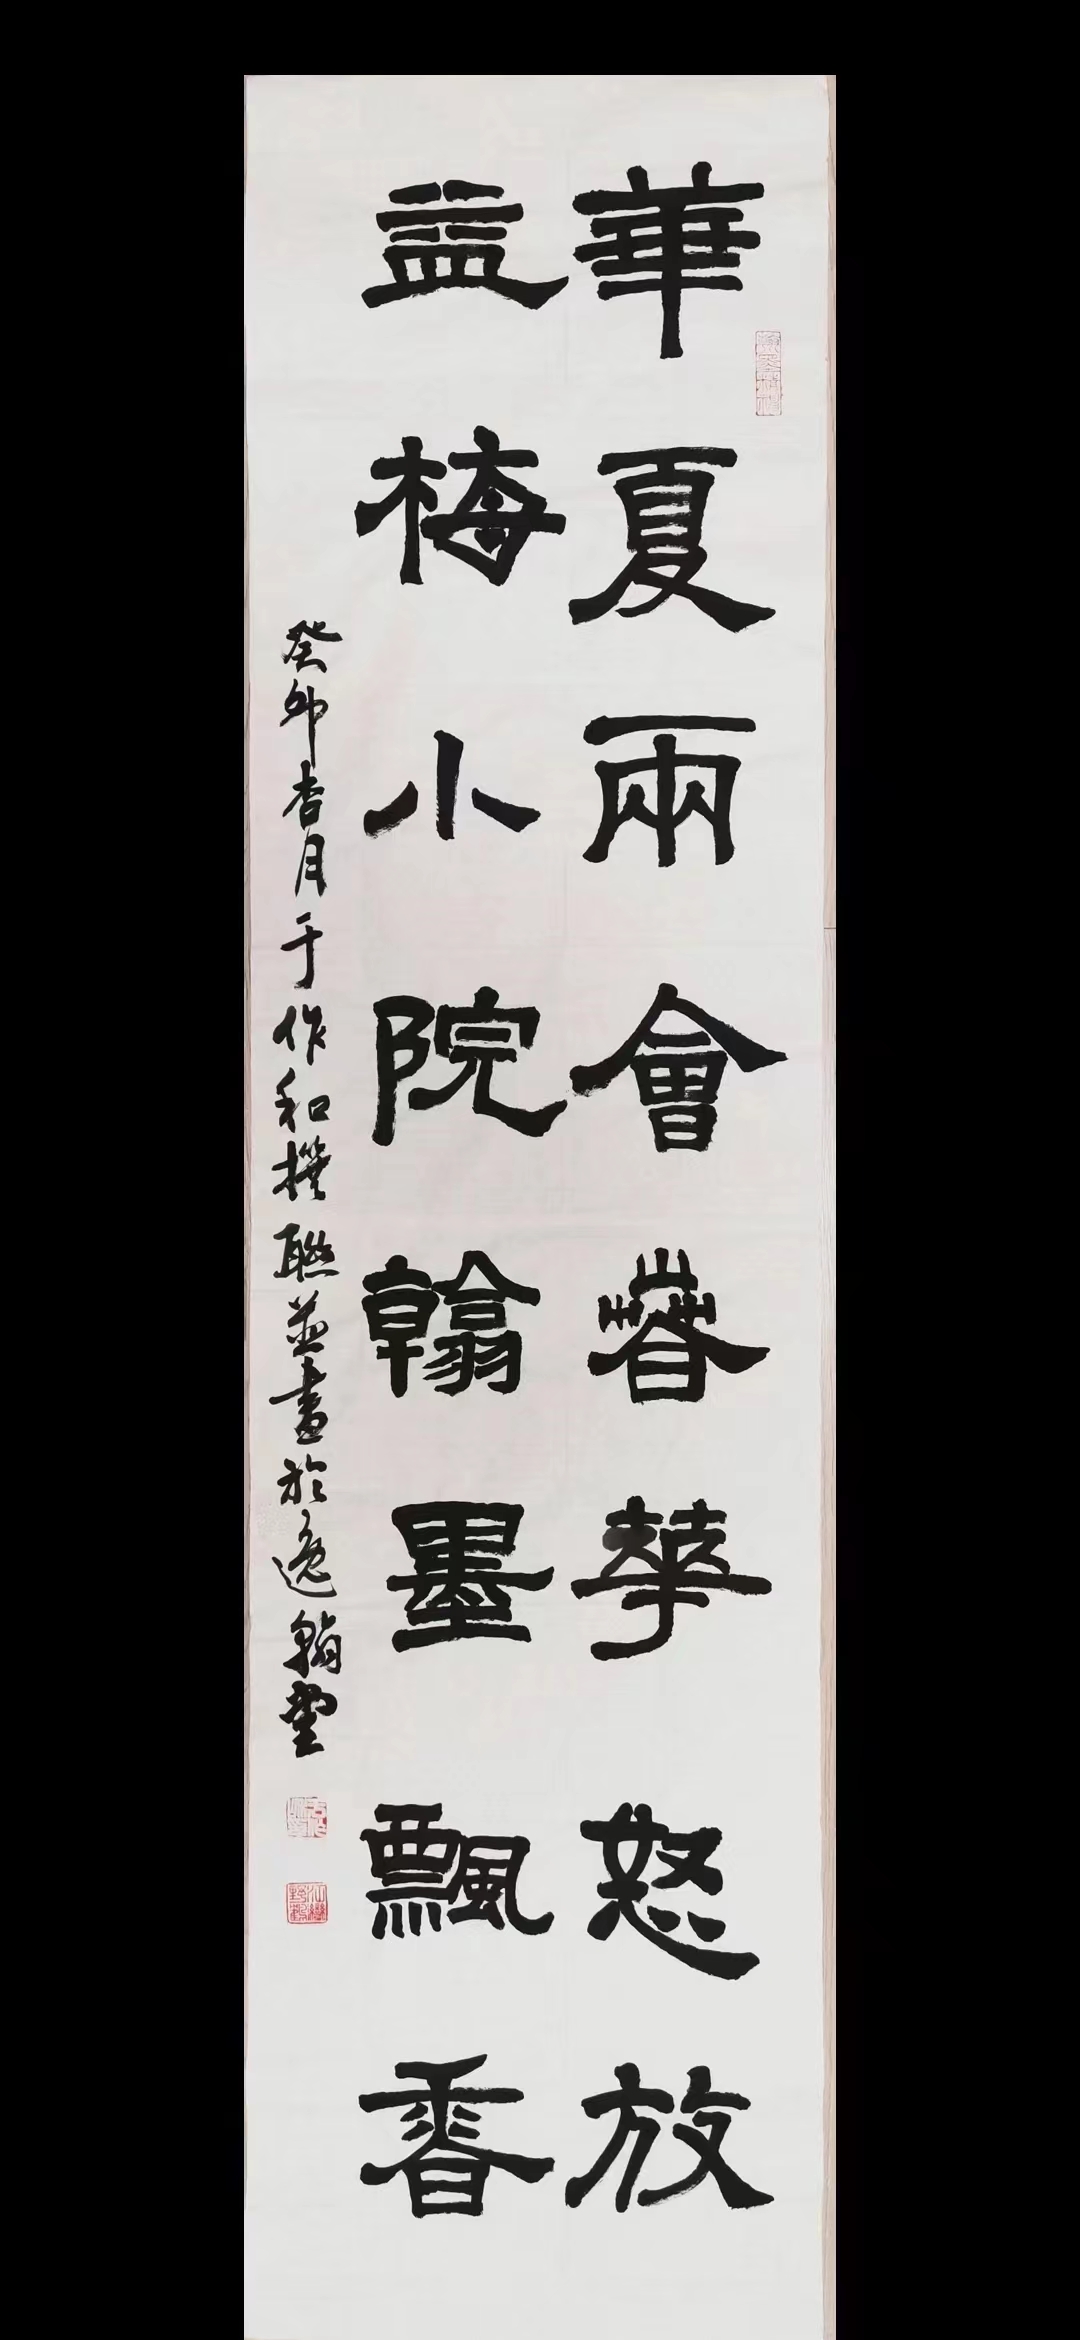 華夏兩會春華怒放
益梅小院翰墨飄香
癸卯杏月于作和撰聯並書於逸翰堂